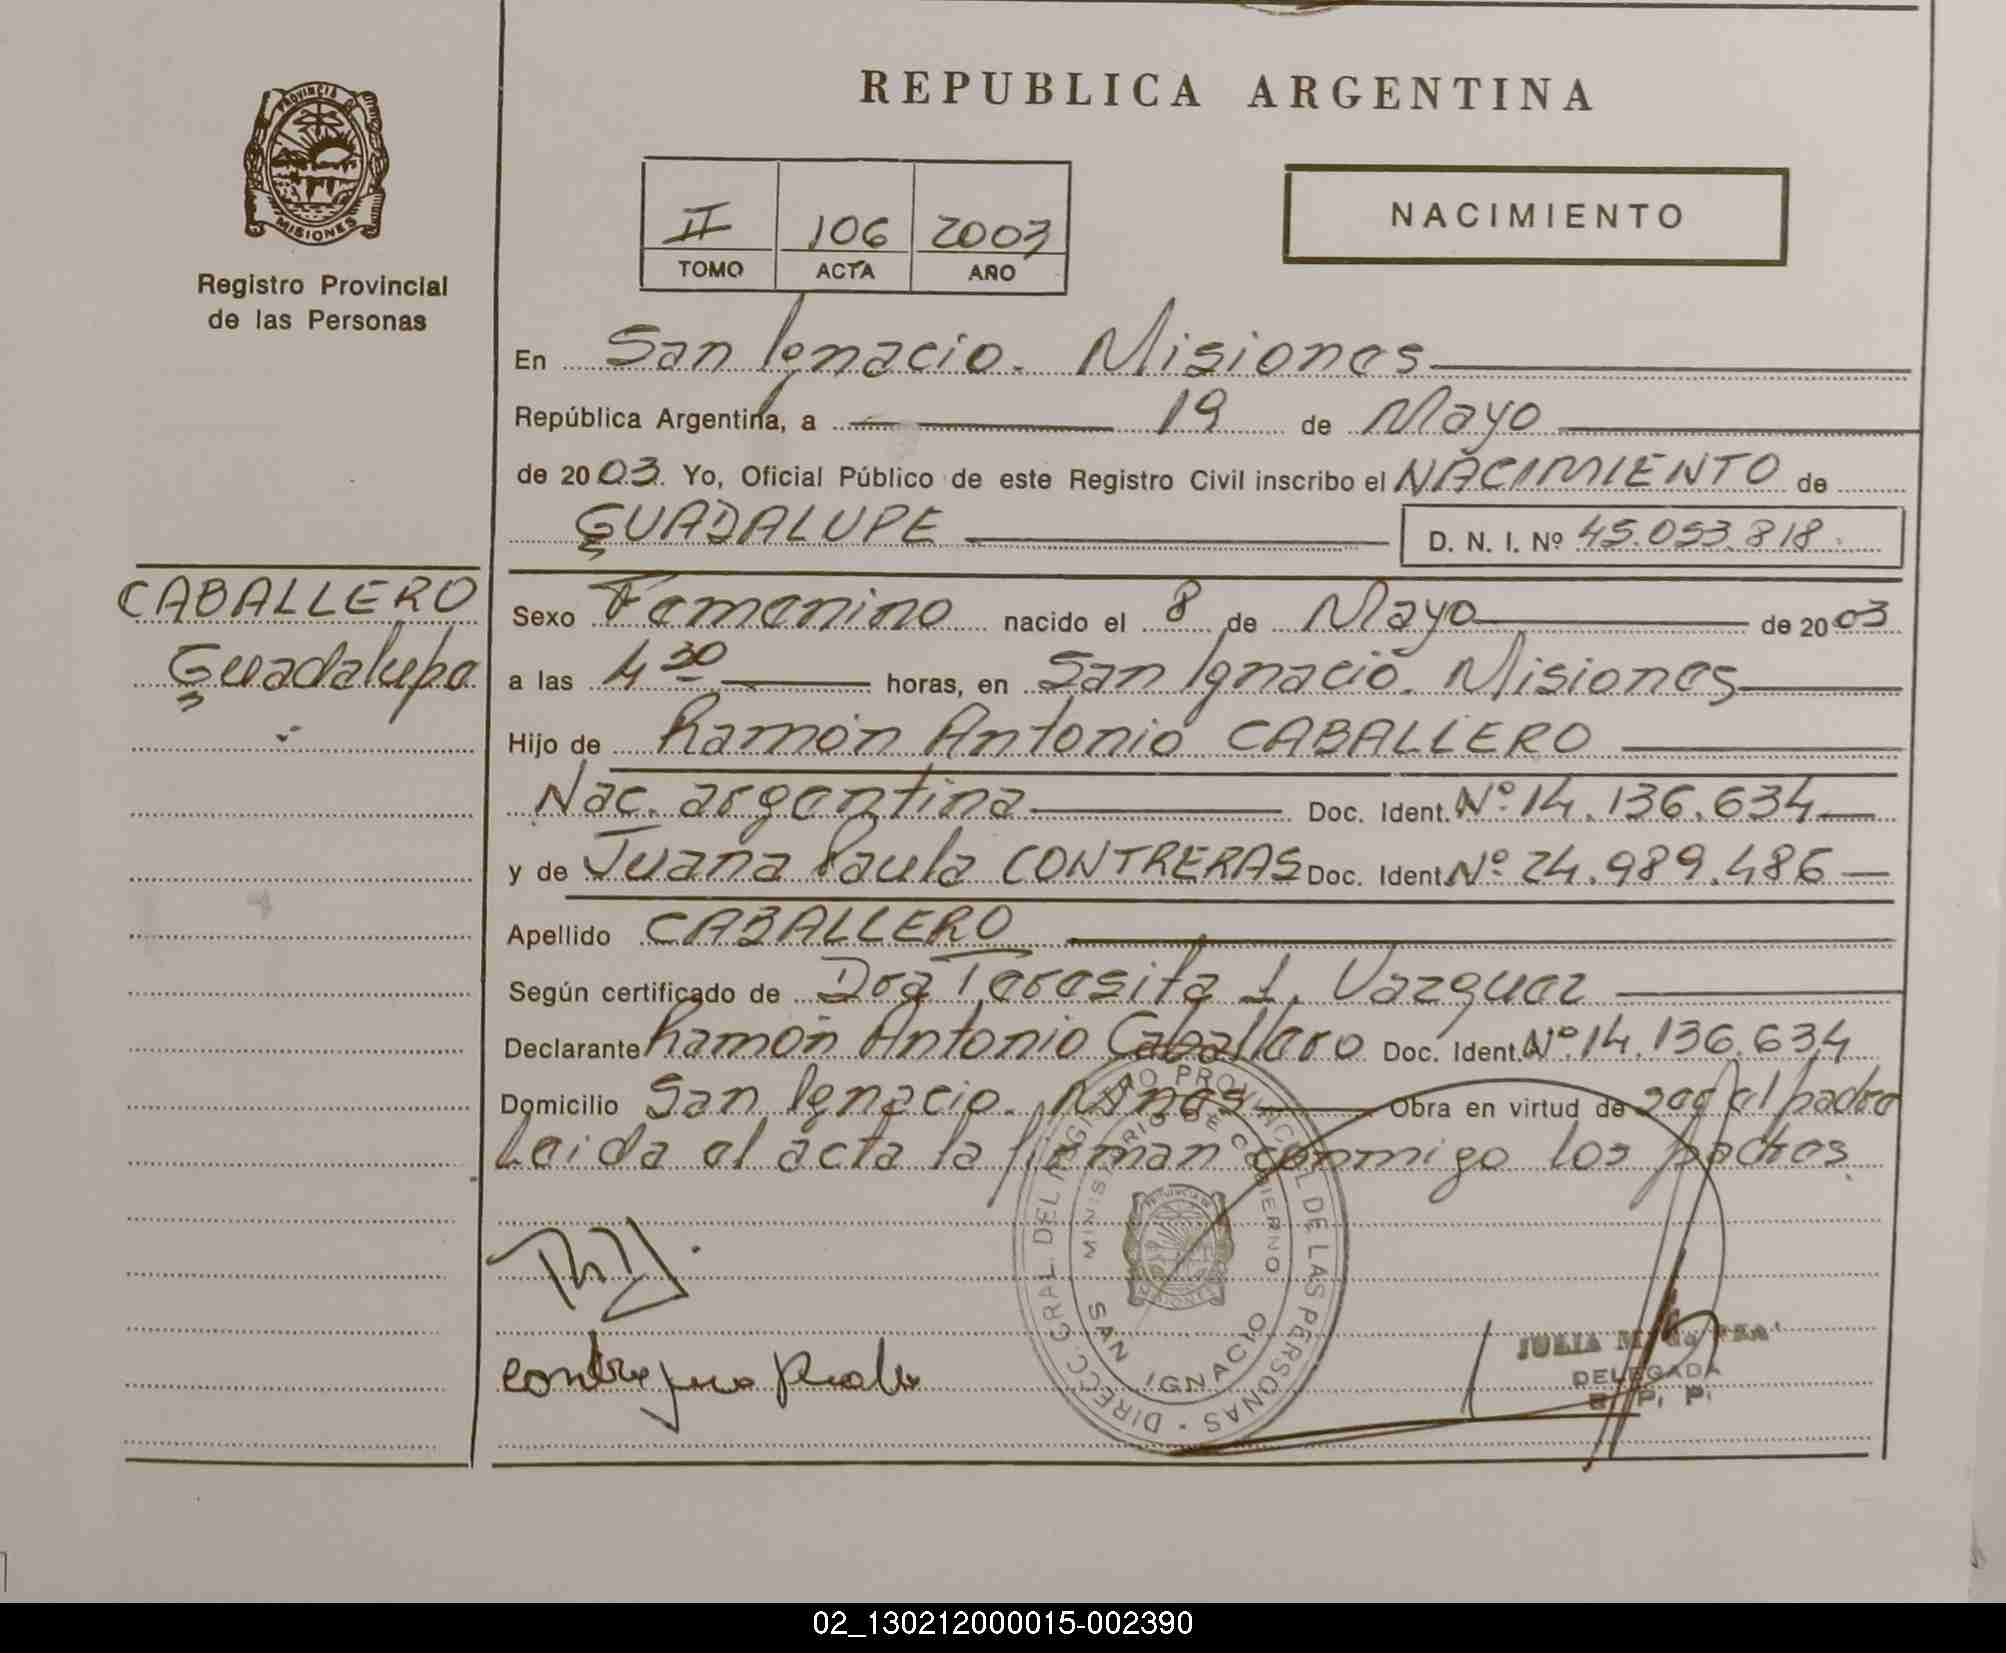 REPUBLICA ARGENTINA
PROVINCIA DE
MISIONES
Registro Provincial
de las Personas
II 106 2003
TOMO ACTA AÑO
NACIMIENTO
En San Ignacio. Misiones
República Argentina, a 19 de Mayo
de 2003. Yo, Oficial Público de este Registro Civil inscribo el NACIMIENTO de
GUADALUPE D. N. I. Nº 45.053.818
CABALLERO
Guadalupe
Sexo Femenino nacido el 8 de Mayo de 2003
a las 4 30 horas, en San Ignacio. Misiones
Hijo de Ramón Antonio CABALLERO
Nac. argentina Doc. Ident. Nº 14.136.634
y de Juana Paula CONTRERAS Doc. Ident. Nº 24.989.486
Apellido CABALLERO
Según certificado de Dra Teresita I. Vazquez
Declarante Ramón Antonio Caballero Doc. Ident. Nº 14.136.634
Domicilio San Ignacio. Mnes Obra en virtud de ser el padre
Leida el acta la firman conmigo los padres.
DIRECC. GRAL. DEL REGISTRO PROVINCIAL DE LAS PERSONAS
MINISTERIO DE GOBIERNO
SAN IGNACIO
JULIA
DELEGADA
R. P. P.
02_130212000015-002390